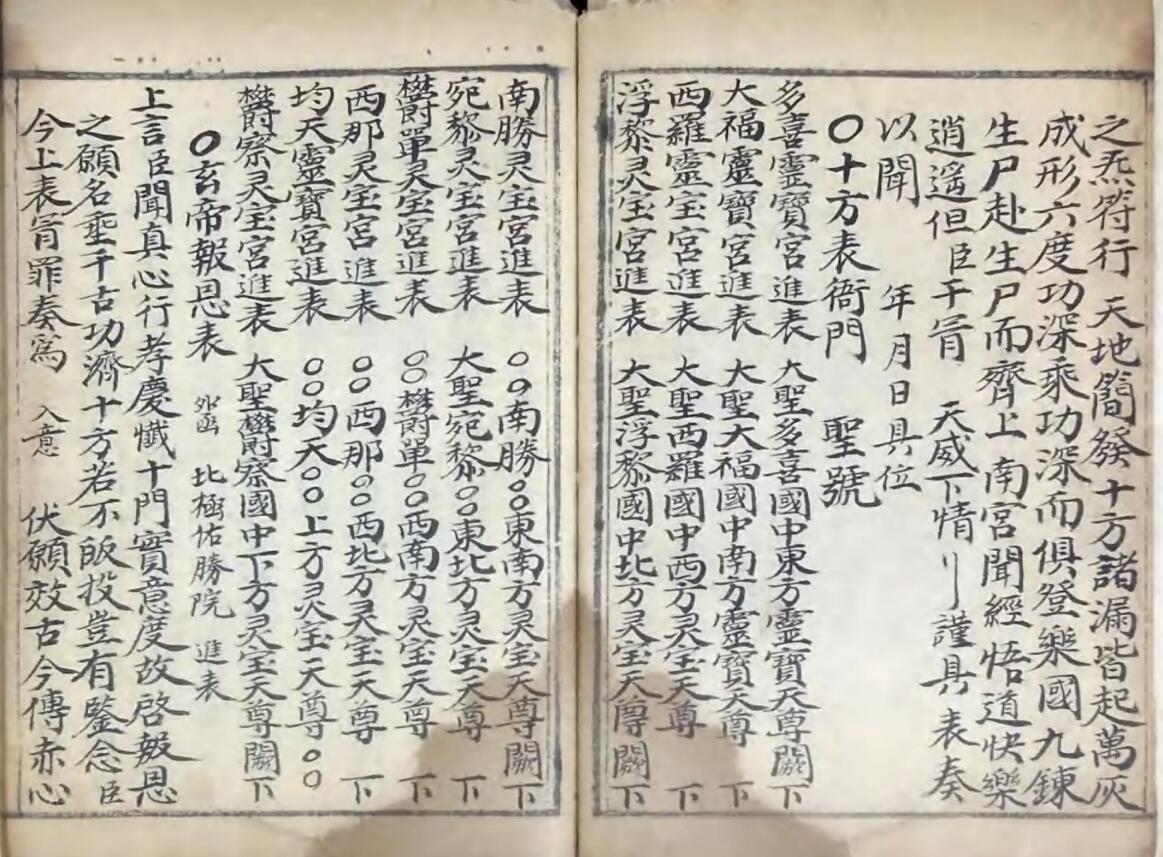 之炁符行　天地簡發十方諸漏皆起萬灰
成形六度功深乘功深而俱登樂國九鍊
生尸赴生尸而齊上南宮聞經悟道快樂
逍遥但臣干冐　天威下情刂謹具　表奏
以聞　年月日具位
〇十方表衙門　聖號
多喜靈寶宮進表　大聖多喜國中東方靈寶天尊闕下
大福靈寶宮進表　大聖大福國中南方靈寶天尊　下
西羅靈宝宮進表　大聖西羅國中西方灵宝天尊　下
浮黎灵宝宮進表　大聖浮黎國中北方灵宝天尊闕下
南勝灵宝宮進表　〇〇南勝〇〇東南方灵宝天尊闕下
宛黎灵宝宮進表　大聖宛黎〇〇東北方灵宝天尊　下
欝單灵宝宮進表　〇〇欝單〇〇西南方灵宝天尊　下
西那灵宝宮進表　〇〇西那〇〇西北方灵宝天尊　下
均天靈寶宮進表　〇〇均天〇〇上方灵宝天尊〇〇
欝察灵宝宮進表　大聖欝察國中下方灵宝天尊闕下
〇玄帝報恩表　外函　北極佑勝院　進表
上言臣聞真心行孝慶懺十門實意度故啓報恩
之願名垂千古功濟十方若不皈投豈有鑒念臣
今上表冐罪奏爲　入意　伏願效古今傳赤心